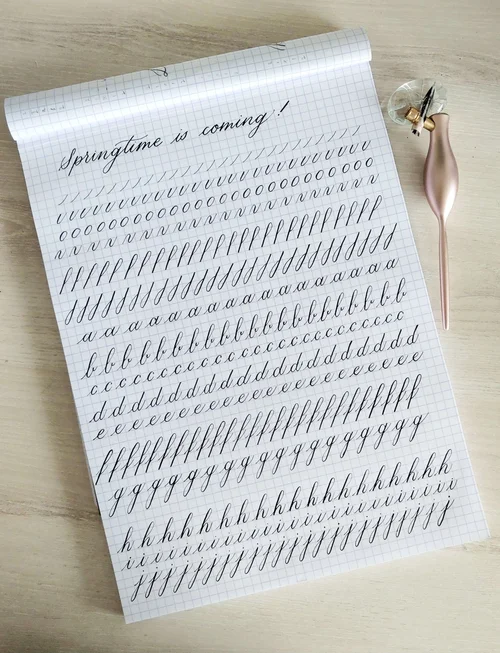 Springtime is coming!
a a a a a a a a a a a a a a a a a a
b b b b b b b b b b b b b b b b b b b
c c c c c c c c c c c c c c c c c c c c c
d d d d d d d d d d d d d d d d d d d
e e e e e e e e e e e e e e e e e e e e
f f f f f f f f f f f f f f f f f f f f f
g g g g g g g g g g g g g g g g g g
h h h h h h h h h h h h h h h h h
i i i i i i i i i i i i i i i i i i i i
j j j j j j j j j j j j j j j j j j j j